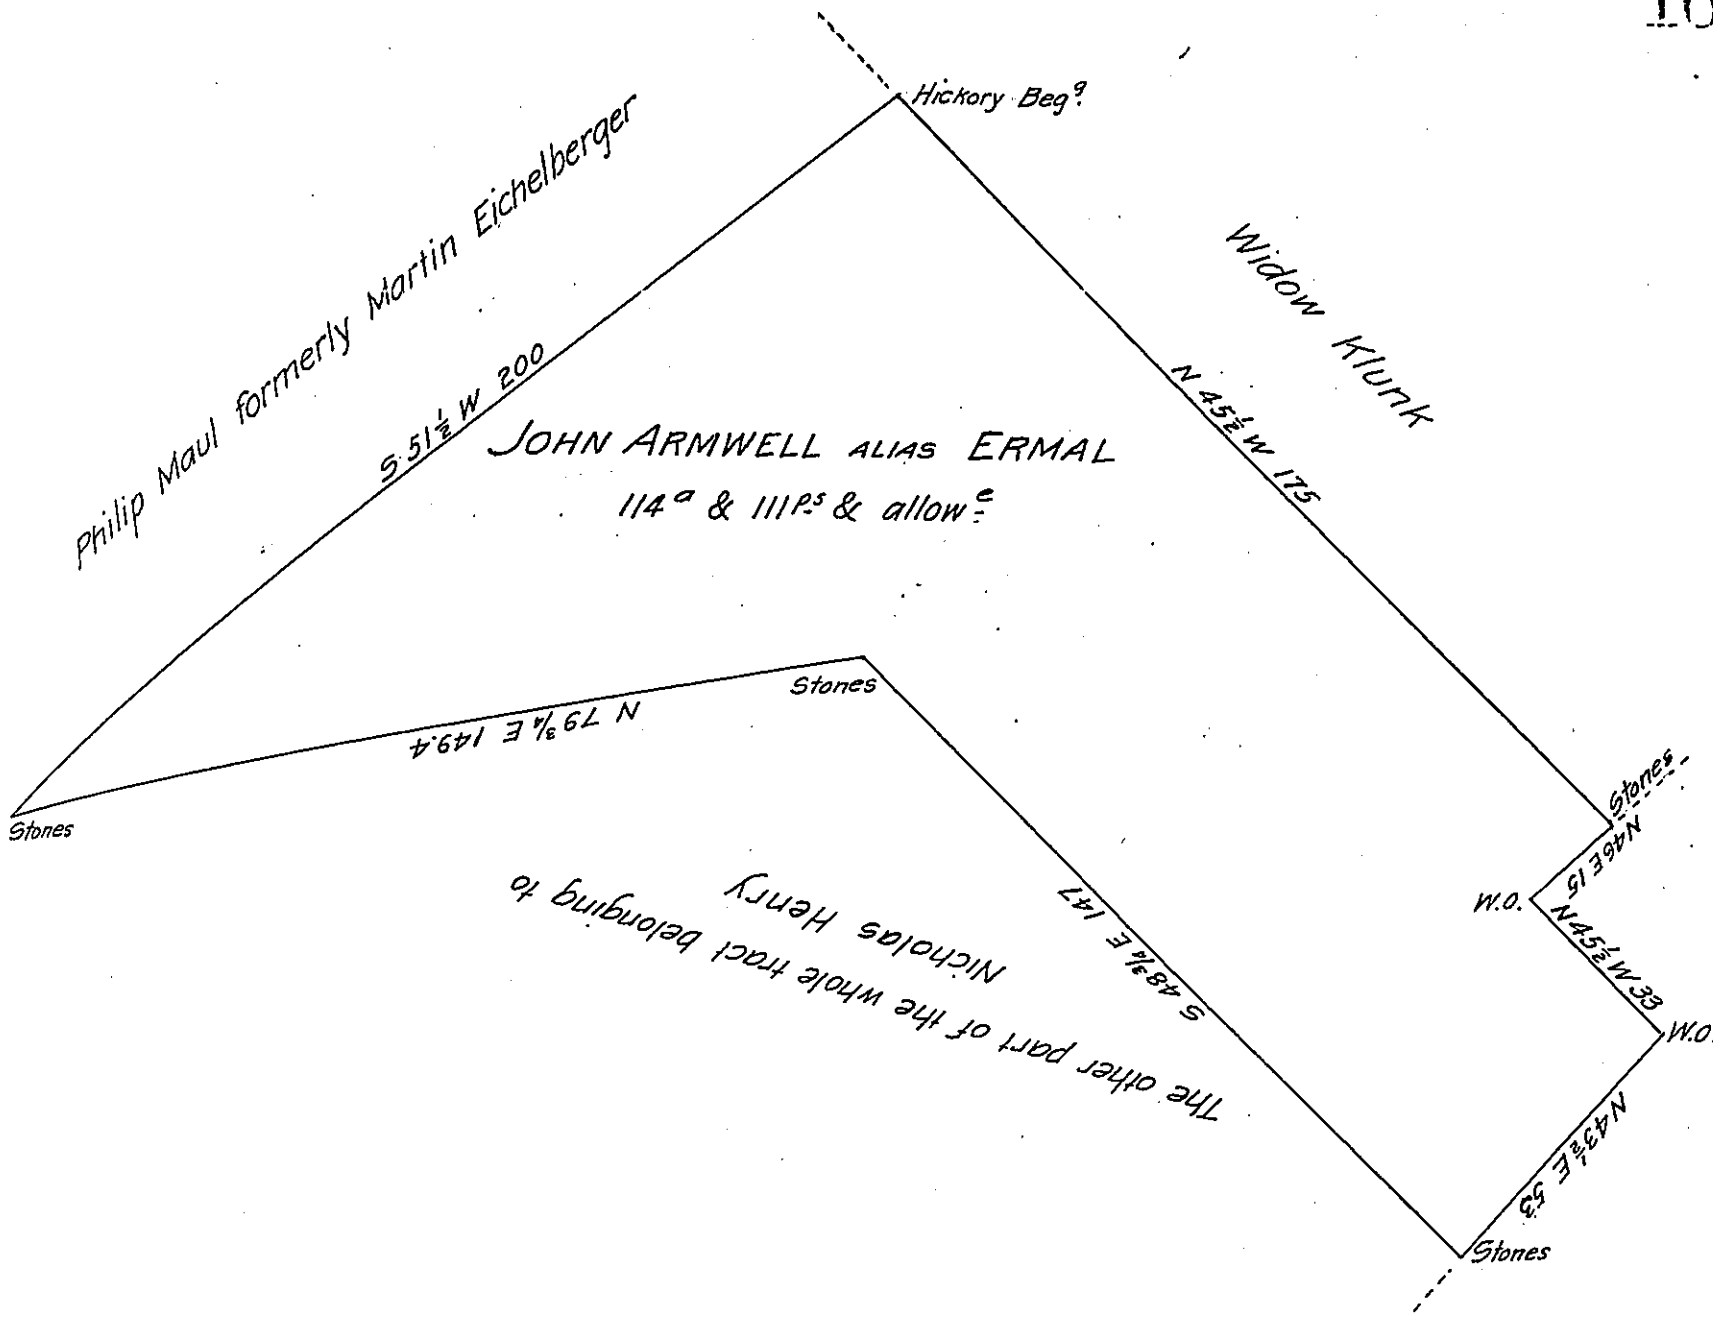 10
Hickory Begg.
Philip Maul formerly Martin Eichelberger
Widow Klunk
S 51½ W 200
N 45½ W 175
JOHN ARMWELL ALIAS ERMAL
114a & 111ps & allowe
Stones
N 79¾ E 149.4
Stones
Stones
N 46 E 15
W.O.
N 45½ W 33
W.O.
S 48¾ E 147
The other part of the whole tract belonging to
Nicholas Henry
N 43½ E 53
Stones